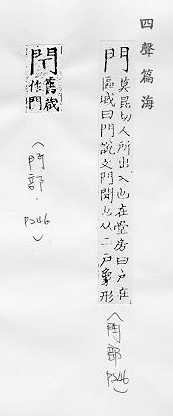 四聲篇海
門
莫昆切人所出入也在堂房曰戶在
區域曰門說文門聞也从二戶象形
(門部 P546)
舊藏
作門
(門部.
P546)